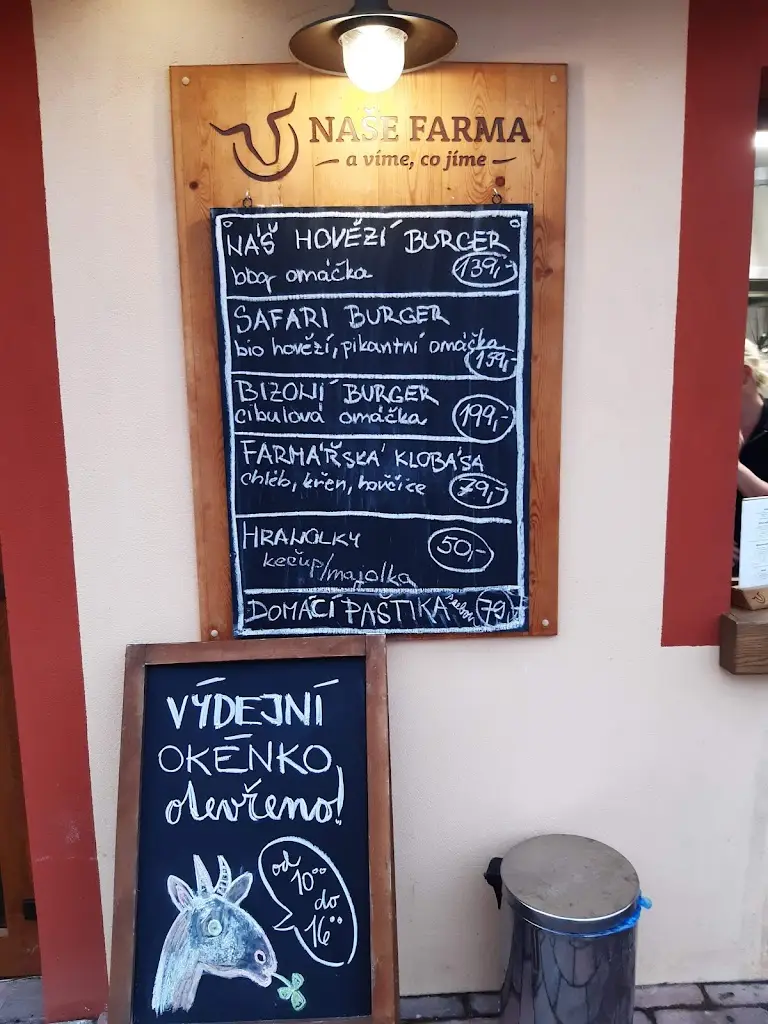 NAŠE FARMA
a víme, co jíme
NÁŠ HOVĚZÍ BURGER
bbq omáčka 139,-
SAFARI BURGER
bio hovězí, pikantní omáčka
159,-
BIZONÍ BURGER
cibulová omáčka 199,-
FARMÁŘSKÁ KLOBÁSA
chléb, křen, hořčice 79,-
HRANOLKY 50,-
kečup/majolka
DOMÁCÍ PAŠTIKA 79,-
VÝDEJNÍ
OKÉNKO
otevřeno!
od
10⁰⁰
do
16⁰⁰